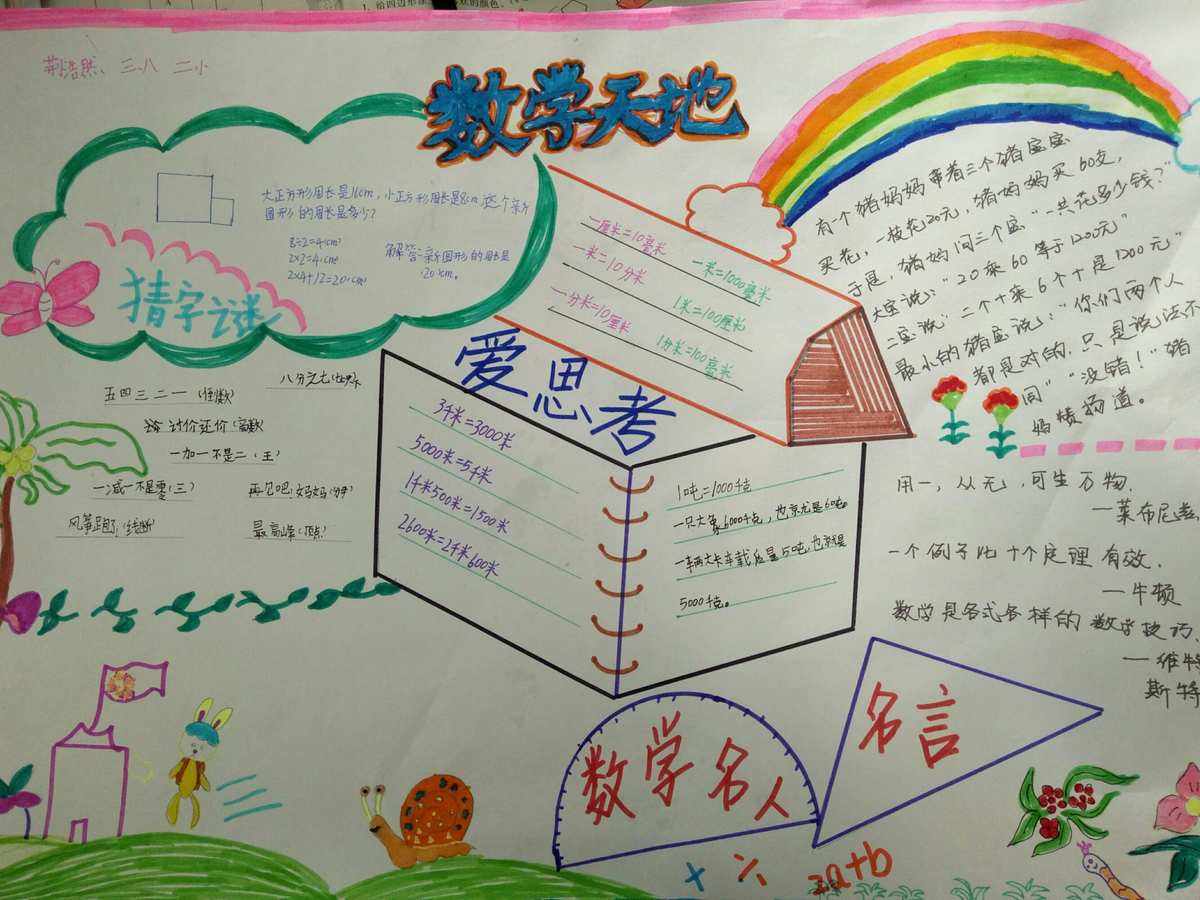 荆浩然、三八 二小
数学天地
大正方形周长是16cm，小正方形周长是8cm 这个新
图形的周长是多少？
8÷2=4(cm)
2×2=4(cm)
2×4+12=20(cm)
解答：新图形的周长是
20(cm)。
猜字谜
一厘米=10毫米
一米=10分米
一分米=10厘米
一米=1000毫米
1米=100厘米
1分米=100毫米
有一个猪妈妈带着三个猪宝宝
买花，一枝花20元，猪妈妈买60支，
于是猪妈问三个宝“一共花多少钱？”
大宝说：“20乘60等于1200元”
二宝说：二个十乘6个十是1200元”
最小的猪宝说：“你们两个人
都是对的，只是说法不
同”“没错！”猪
妈赞扬道。
五四三二一(倒数)
八分之七
讨价还价(商数)
一加一不是二(王)
一减一不是零(三)
再见吧,妈妈(分母)
风筝跑了(线断)
最高峰(顶点)
爱思考
3千米=3000米
5000米=5千米
1千米500米=1500米
2600米=2千米600米
1吨=1000千克
一只大象6000千克，也就是6吨。
一辆大卡车载后是50吨,也就是
5000千克。
用一，从无，可生万物.
一莱布尼兹
一个例子比十个定理有效.
一牛顿
数学是各式各样的数学技巧.
一维特
斯特
数学名人
名言
+ ÷ a+b